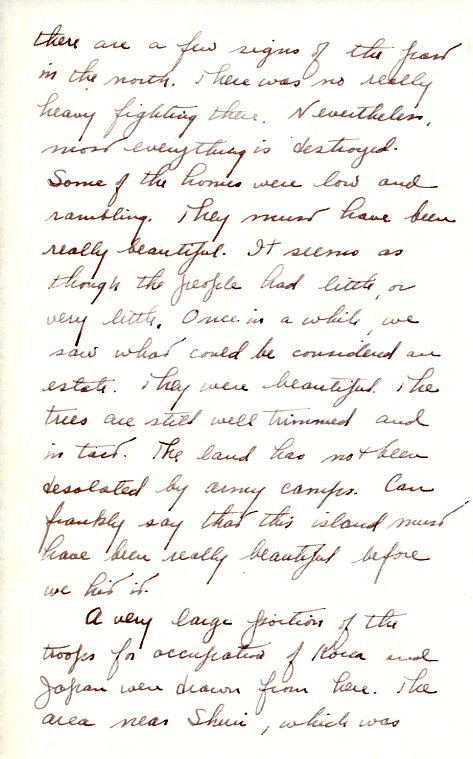 there are a few signs of the past
in the north. There was no really
heavy fighting there. Nevertheless,
most everything is destroyed.
Some of the homes were low and
rambling. They must have been
really beautiful. It seems as
though the people had little, or
very little. Once in a while, we
saw what could be considered an
estate. They were beautiful. The
trees are still well trimmed and
in tact. The land has not been
desolated by army camps. Can
frankly say that this island must
have been really beautiful before
we hit it.
A very large portion of the
troops for occupation of Korea and
Japan were drawn from here. The
area near Shuri, which was